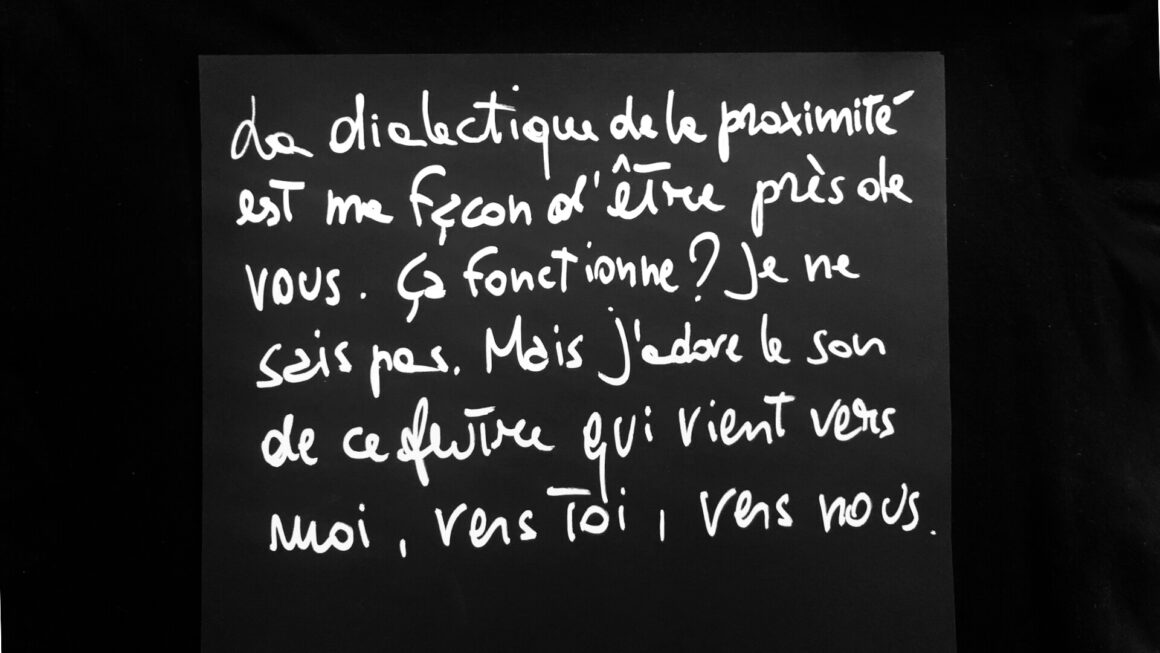 La dialectique de la proximité
est ma façon d'être près de
vous. Ça fonctionne? Je ne
sais pas. Mais j'adore le son
de ce feutre qui vient vers
moi, vers toi, vers nous.